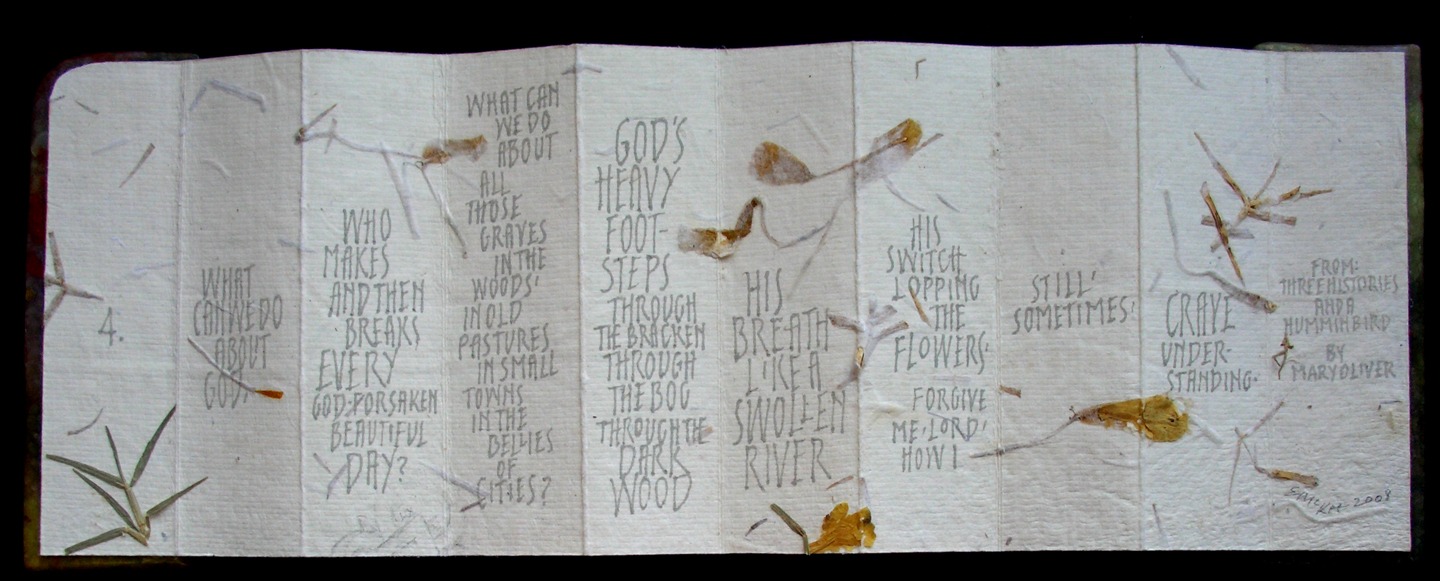 4.
WHAT
CAN WE DO
ABOUT
GOD,
WHO
MAKES
AND THEN
BREAKS
EVERY
GOD-FORSAKEN
BEAUTIFUL
DAY?
WHAT CAN
WE DO
ABOUT
ALL
THOSE
GRAVES
IN THE
WOODS,
IN OLD
PASTURES
IN SMALL
TOWNS
IN THE
BELLIES
OF
CITIES?
GOD'S
HEAVY
FOOT-
STEPS
THROUGH
THE BRACKEN
THROUGH
THE BOG
THROUGH THE
DARK
WOOD
HIS
BREATH
LIKE A
SWOLLEN
RIVER
HIS
SWITCH
LOPPING
THE
FLOWERS,
FORGIVE
ME, LORD,
HOW I
STILL,
SOMETIMES,
CRAVE
UNDER-
STANDING.
FROM:
THREE HISTORIES
AND A
HUMMINBIRD
BY
MARY OLIVER
McKee 2008